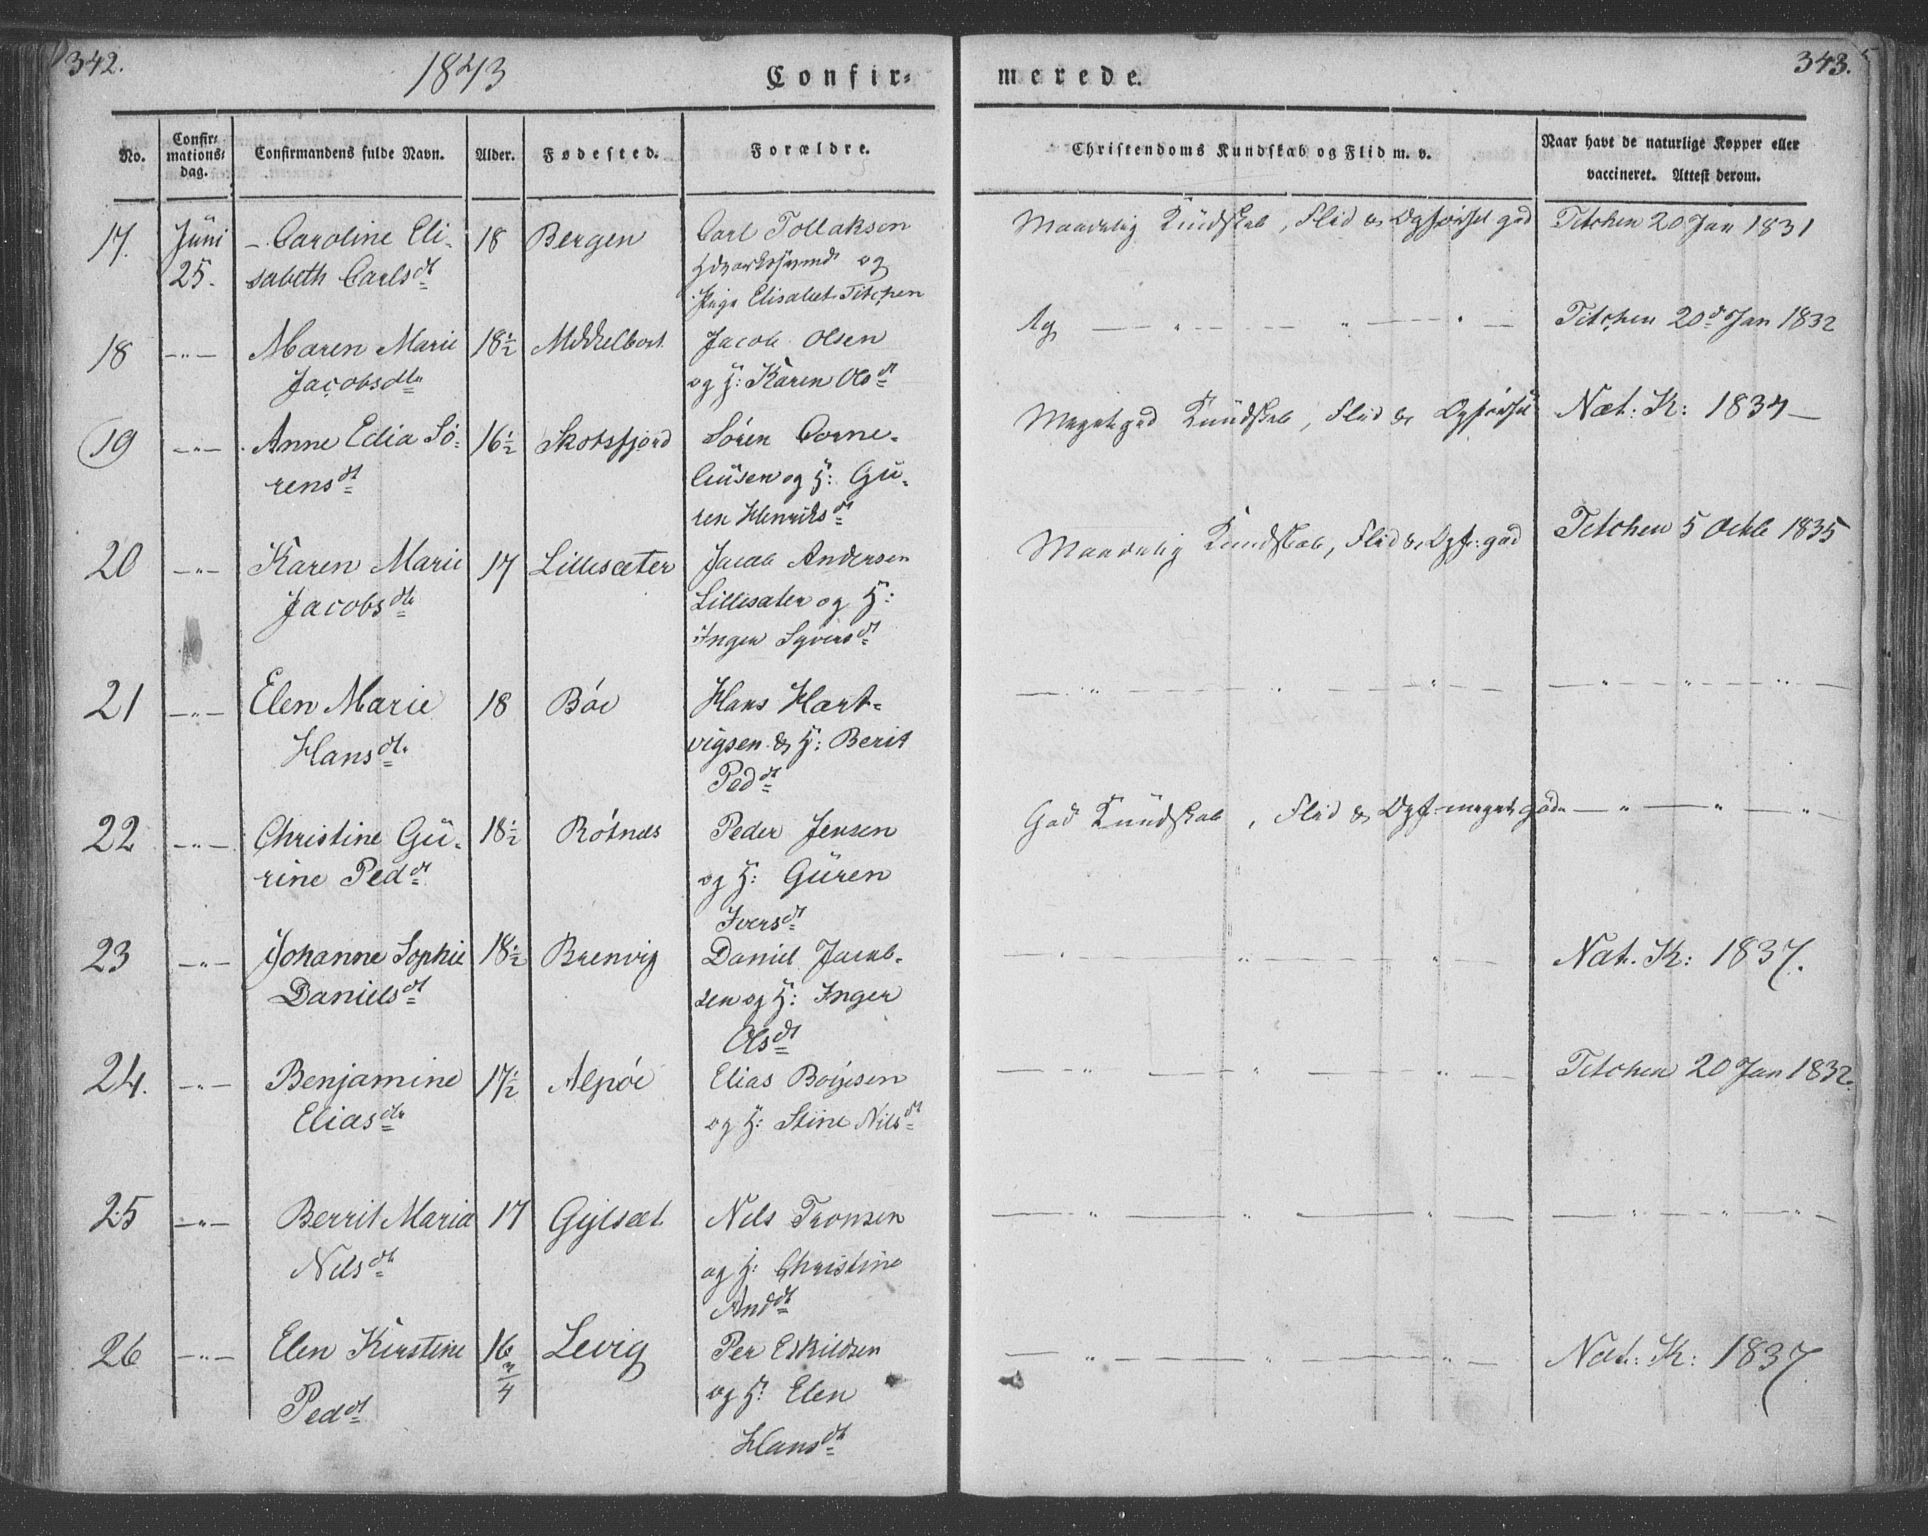 342.
1843
Confir=
merede.
343.
No.
Confir=
mations=
dag.
Confirmandens fulde Navn.
Alder.
Fødested.
Forældre.
Christendoms Kundskab og Flid m. v.
Naar havt de naturlige Kopper eller
vaccineret. Attest derom.
17.
Juni
25.
Caroline Eli-
sabeth Carlsdt
18
Bergen
Carl Tollaksen
og
Inga Elisabet Titchen
Maadelig Kundskab, Flid & Opførsel god
Titchen 20 Jan 1831
18
— " —
Maren Marie
Jacobsdtr
18 1/2
Middelbort
Jacob Olsen
og H: Karen Olsdt
Titchen 20d Jan 1832
19
— " —
Anne Edia Sö-
rensdt
16 1/2
Skotsfjord
Sören Corne-
liusen og H: Gu-
ren Henriksdt
Megetgod Kundskab, Flid & Opførsel
Nat: K: 1834 —
20
— " —
Karen Marie
Jacobsdtr
17
Lillesæter
Jacob Andersen
Lillesæter og H:
Inger Syversdt
Maadelig Kundskab, Flid & Opf: god
Titchen 5 Octb 1835
21
— " —
Elen Marie
Hansdtr
18
Böe
Hans Hart-
vigsen & H: Berit
Peddt
— " — " — " —
— " — " — " —
22
— " —
Christine Gu-
rine Peddt
18 1/2
Rötnæs
Peder Jensen
og H: Guren
Iversdt
God Kundskab, Flid & Opf meget god
— " — " — " —
23
— " —
Johanne Sophie
Danielsdt
18 1/2
Brenvig
Daniel Jacob-
sen og H: Inger
Olsdt
— " — " — " —
Nat. K: 1837.
24.
— " —
Benjamine
Eliasdtr
17 1/2
Alpöe
Elias Böijesen
og H: Stine Nilsdt
— " — " — " —
Titchen 20 Jan 1832
25
— " —
Berrit Maria
Nilsdtr
17
Gjylsæt
Nils Tronsen
og H: Christine
Anddt
— " — " — " —
— " — " — " —
26
— " —
Elen Kirstine
Peddt
16 3/4
Levig
Per Eskildsen
og H: Elen
Hansdtr
— " — " — " —
Nat: K: 1837